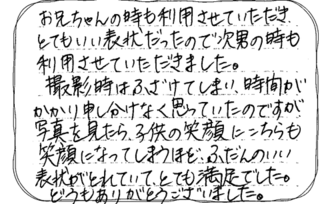 お兄ちゃんの時も利用させていただき
とてもいい表状だったので次男の時も
利用させていただきました。
撮影時はふざけてしまい、時間が
かかり申し分けなく思っていたのですが
写真を見たら、子供の笑顔にこちらも
笑顔になってしまうほど、ふだんのいい
表状がとれていて、とても満足でした。
どうもありがとうございました。